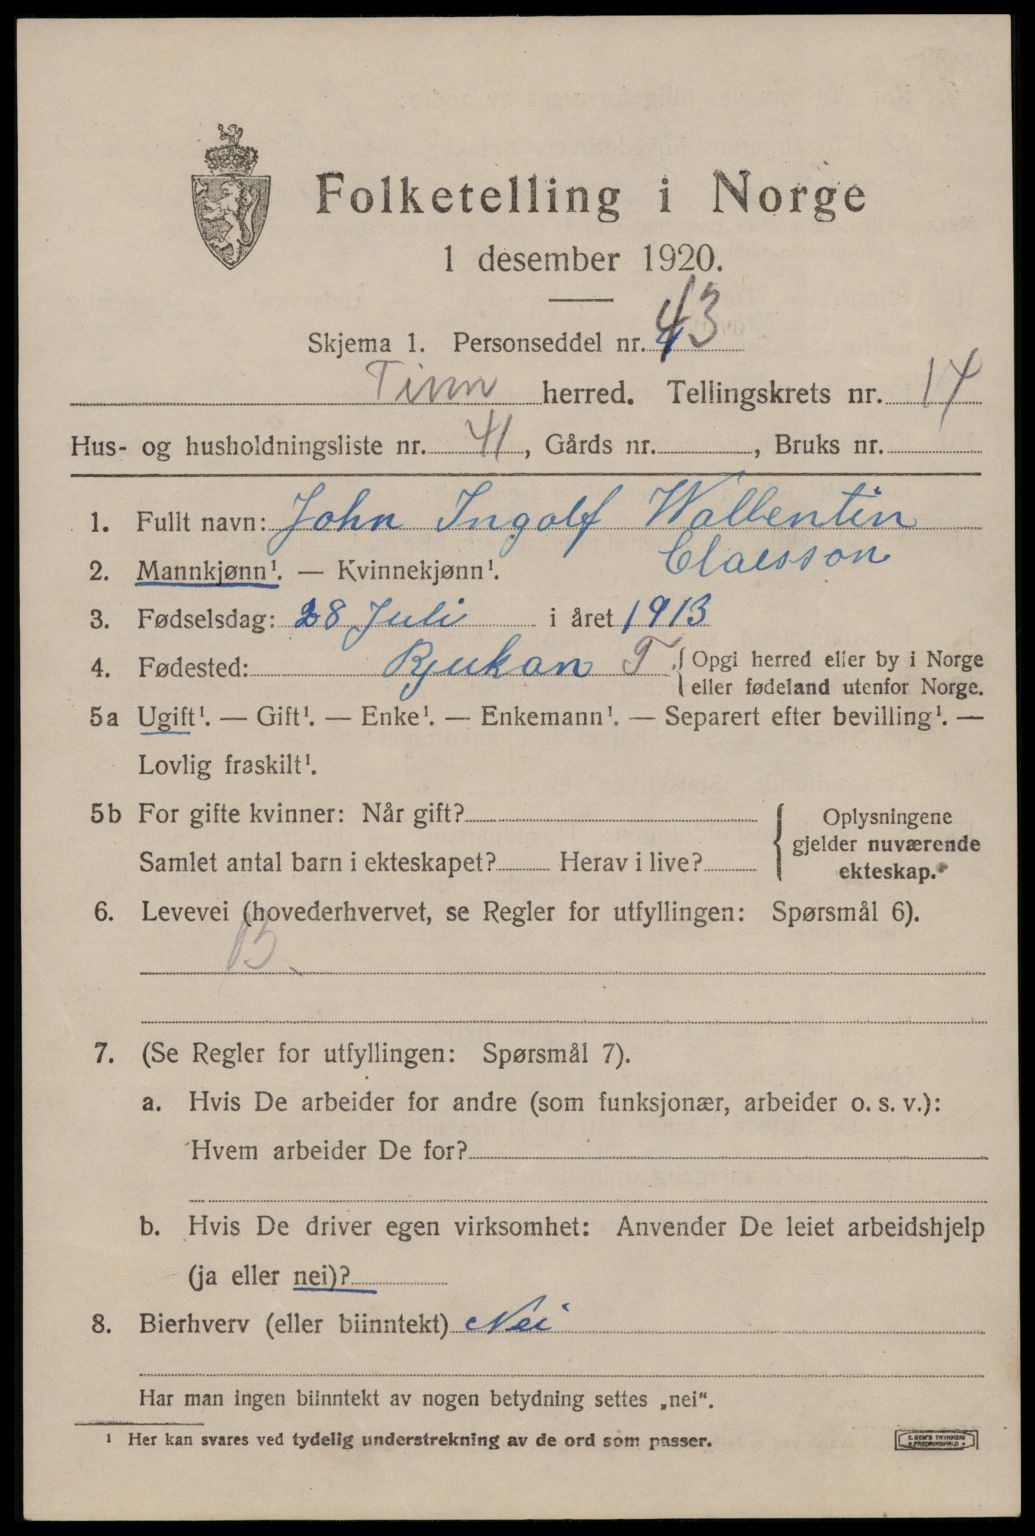 Folketelling i Norge
1 desember 1920.
Skjema 1. Personseddel nr. 43
Tinn herred. Tellingskrets nr. 14
Hus- og husholdningsliste nr. 41, Gårds nr. , Bruks nr.
1. Fullt navn: John Ingolf Wallentin
Claesson
2. Mannkjønn¹. — Kvinnekjønn¹.
3. Fødselsdag: 28 Juli i året 1913
4. Fødested: Rjukan T. { Opgi herred eller by i Norge
eller fødeland utenfor Norge.
5a Ugift¹. — Gift¹. — Enke¹. — Enkemann¹. — Separert efter bevilling¹. —
Lovlig fraskilt¹.
5b For gifte kvinner: Når gift?
Samlet antal barn i ekteskapet? Herav i live?
{ Oplysningene
gjelder nuværende
ekteskap.
6. Levevei (hovederhvervet, se Regler for utfyllingen: Spørsmål 6).
B.
7. (Se Regler for utfyllingen: Spørsmål 7).
a. Hvis De arbeider for andre (som funksjonær, arbeider o. s. v.):
Hvem arbeider De for?
b. Hvis De driver egen virksomhet: Anvender De leiet arbeidshjelp
(ja eller nei)?
8. Bierhverv (eller biinntekt) Nei
Har man ingen biinntekt av nogen betydning settes „nei“.
¹ Her kan svares ved tydelig understrekning av de ord som passer.